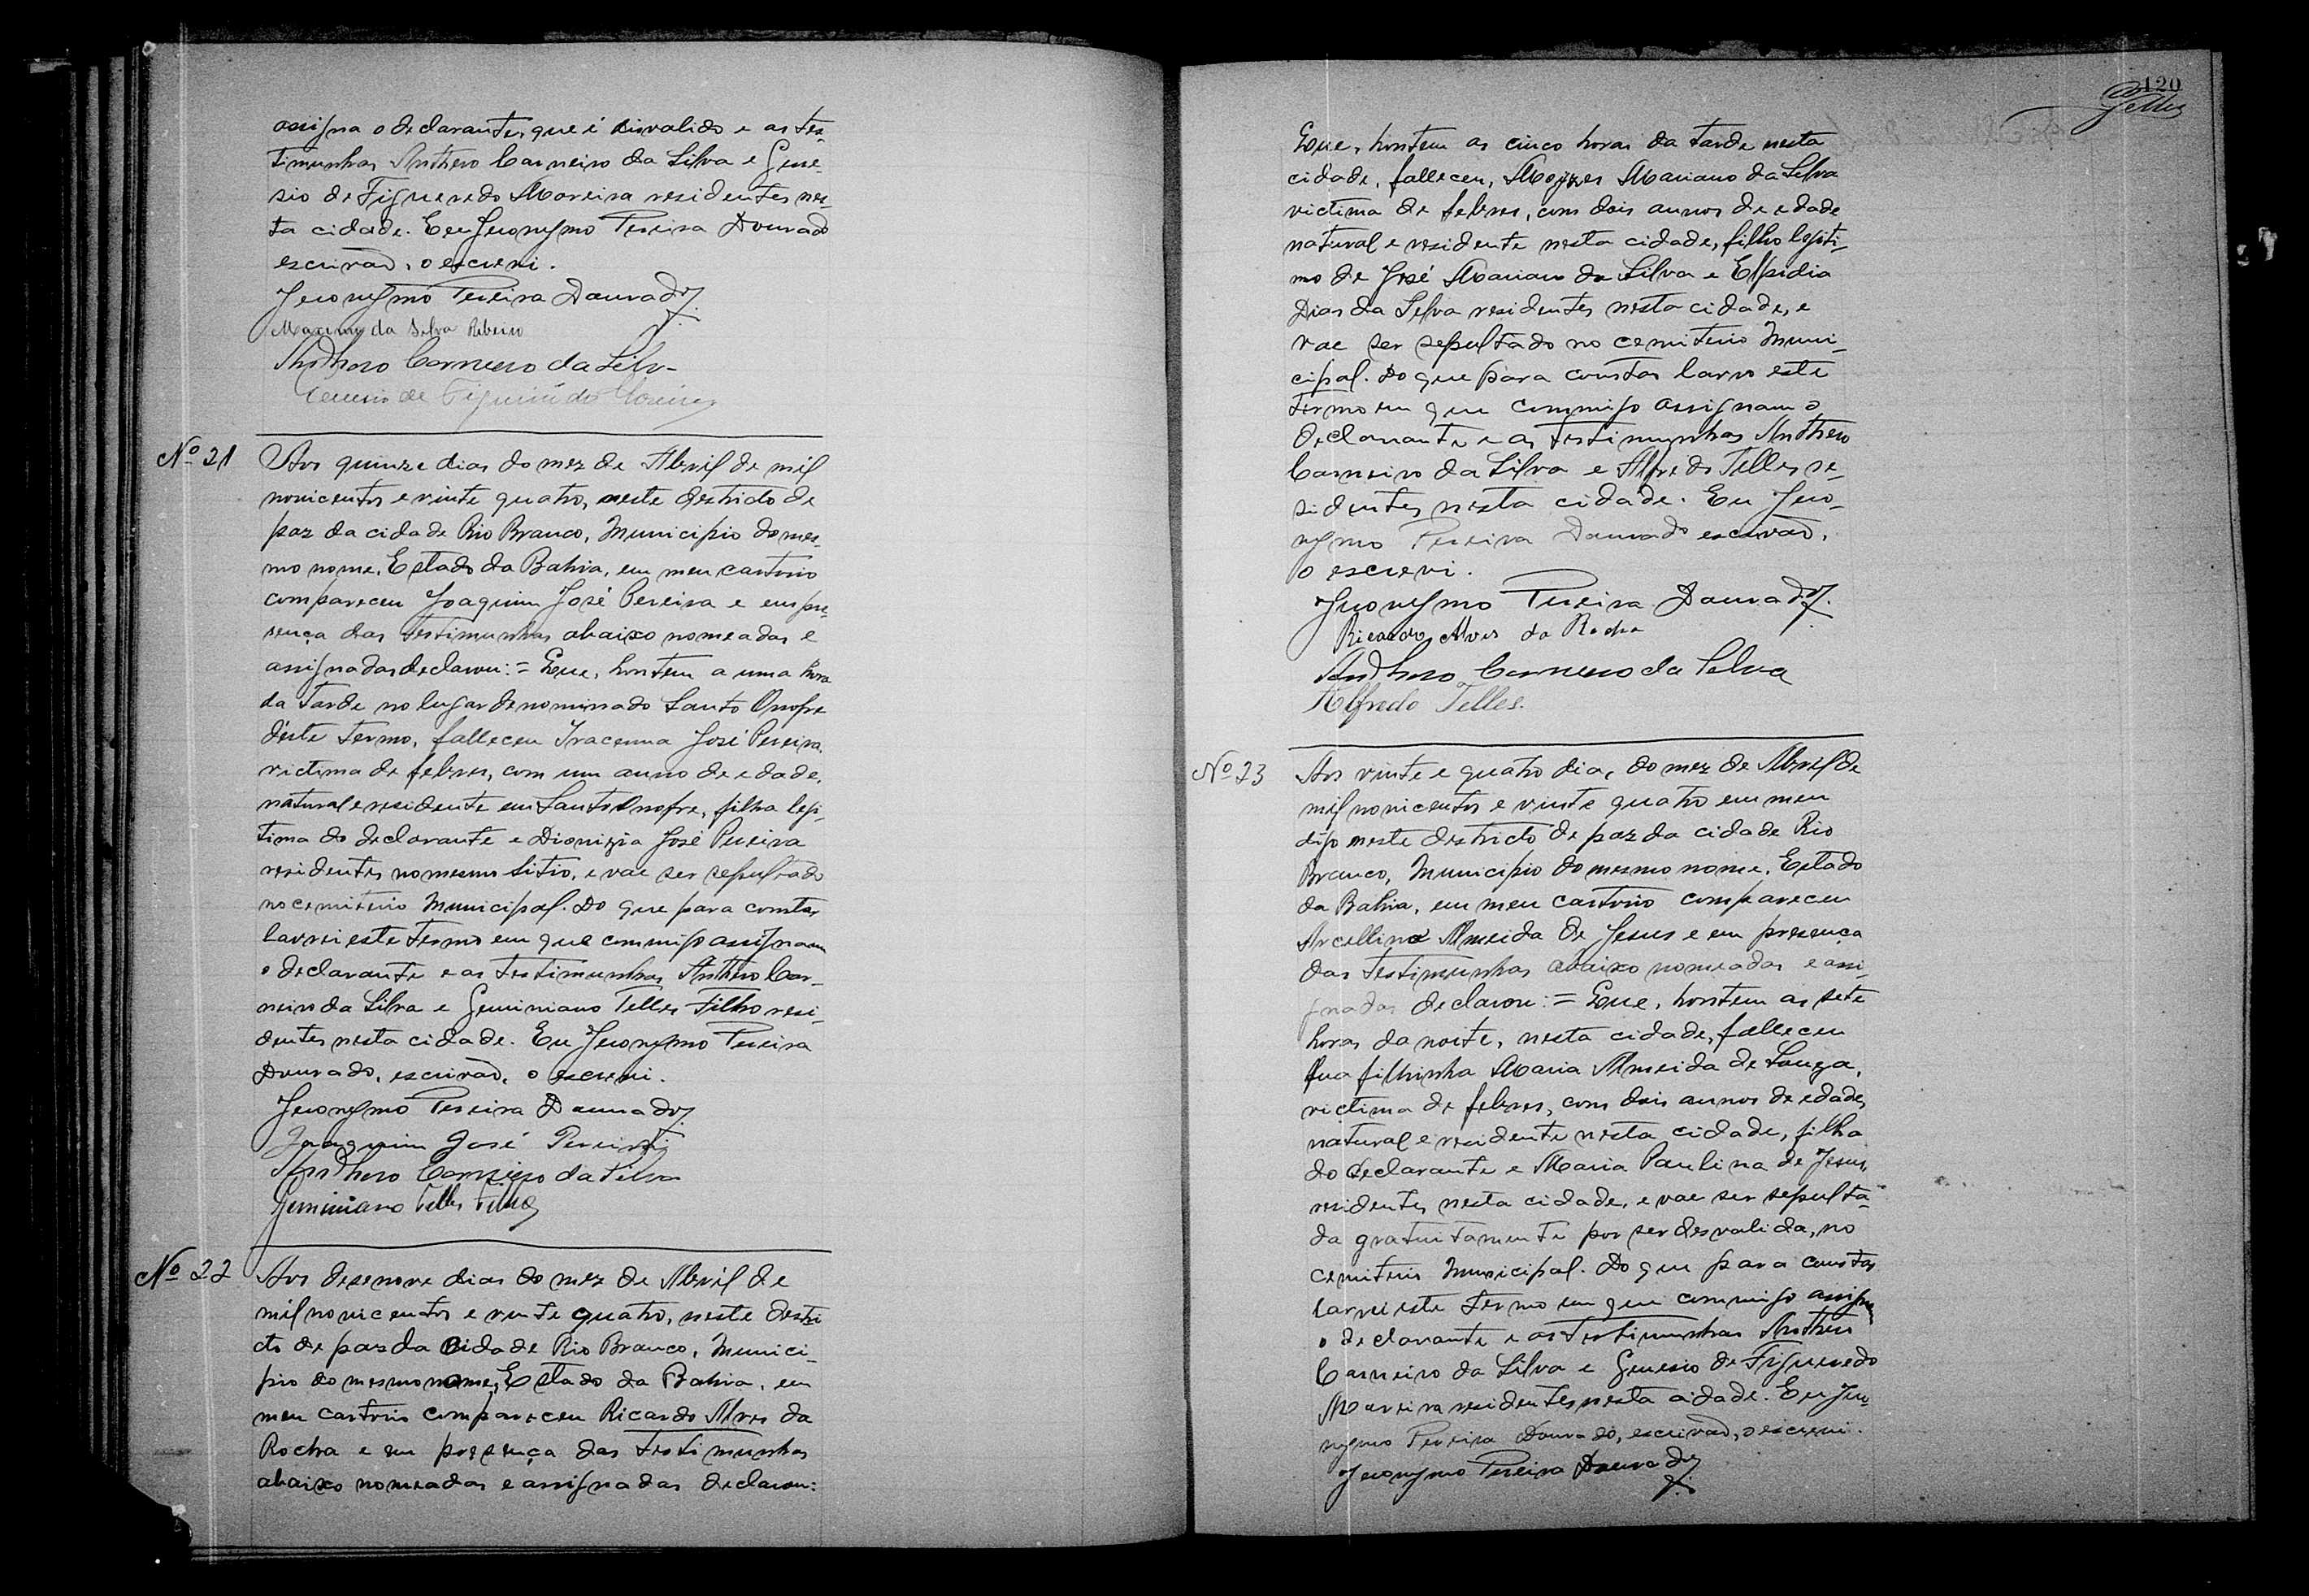 assigna o declarante, que é disvalido e as tes-
timunhas Anthero Carneiro da Silva e Gene-
sio de Figueredo Moreira residentes nes-
ta cidade. Eu Jeronymo Pereira Dourado
escrivão, o escrevi.
Jeronymo Pereira Dourado
Maximo da Silva Ribeiro
Anthero Carneiro da Silva
Genesio de Figueiredo Moreira
Nº 21 Aos quinze dias do mez de Abril de mil
novicentos e vinte quatro, neste destricto de
paz da cidade Rio Branco, Municipio do mes-
mo nome, Estado da Bahia, em meu cartorio
compareceu Joaquim José Pereira e em pre-
sença das testimunhas abaixo nomeadas e
assignadas declarou: = Que, hontem a uma hora
da tarde no lugar denominado Santo Onofre
d'este termo, falleceu Iracema José Pereira,
victima de febres, com um anno de edade,
natural e residente em Santo Onofre, filha legi-
tima do declarante e Dionizia José Pereira
residentes no mesmo sitio, e vae ser sepultado
no cemiterio Municipal. Do que para constar
lavrei este termo em que commigo assignam
o declarante e as testimunhas Anthero Car-
neiro da Silva e Geminiano Telles Filho resi-
dentes nesta cidade. Eu Jeronymo Pereira
Dourado, escrivão, o escrevi.
Jeronymo Pereira Dourado
Joaquim José Pereira
Anthero Carneiro da Silva
Geminiano Telles Filho
Nº 22 Aos desenove dias do mez de Abril de
mil novicentos e vinte quatro, neste destri
cto de paz da Cidade Rio Branco, Munici-
pio do mesmo nome, Estado da Bahia, em
meu cartorio compareceu Ricardo Alves da
Rocha e em presença das testimunhas
abaixo nomeadas e assignadas declarou:
120
Telles
Que, hontem as cinco horas da tarde nesta
cidade, falleceu, Moyzes Mariano da Silva
victima de febres, com dois annos de edade
natural e residente nesta cidade, filho legiti-
mo de José Mariano da Silva e Elpidia
Dias da Silva residentes nesta cidade, e
vae ser sepultado no cemiterio Muni-
cipal. Do que para constar lavro este
termo em que commigo assignam o
declarante e as testimunhas Anthero
Carneiro da Silva e Alfredo Telles re-
sidentes nesta cidade. Eu Jero-
nymo Pereira Dourado escrivão,
o escrevi.
Jeronymo Pereira Dourado
Ricardo Alves da Rocha
Anthero Carneiro da Silva
Alfredo Telles.
Nº 23 Aos vinte e quatro dias do mez de Abril de
mil novicentos e vinte quatro em meu
digo neste destricto de paz da cidade Rio
Branco, Municipio do mesmo nome, Estado
da Bahia, em meu cartorio compareceu
Arcellino Almeida de Jesus e em presença
das testimunhas abaixo nomeadas e assi-
gnadas declarou: = Que, hontem as sete
horas da noite, nesta cidade, falleceu
sua filhinha Maria Almeida de Souza,
victima de febres, com dois annos de edade,
natural e residente nesta cidade, filha
do declarante e Maria Paulina de Jesus,
residentes nesta cidade, e vae ser sepulta-
da gratuitamente por ser desvalida, no
cemiterio Municipal. Do que para constar
lavrei este termo em que commigo assigna
o declarante e as testimunhas Anthero
Carneiro da Silva e Genesio de Figueredo
Moreira residentes nesta cidade. Eu Jero-
nymo Pereira Dourado, escrivão, o escrevi.
Jeronymo Pereira Dourado